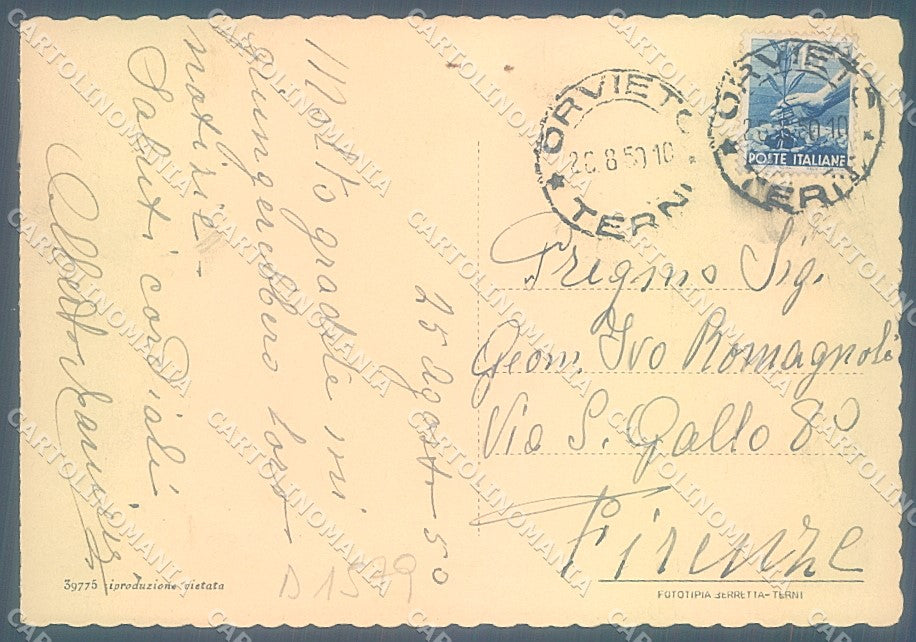 25 Agosto 50
Molto gradite mi
giungerebbero loro
notizie -
Saluti cordiali
Alberto
Pregmo Sig.
Geom. Ivo Romagnoli
Via S. Gallo
Firenze
ORVIETO
8 50 10
TERNI
ORVIETO
50 10
TERNI
POSTE ITALIANE
39775 riproduzione vietata
FOTOTIPIA BERRETTA-TERNI
D 1529
CARTOLINOMANIA